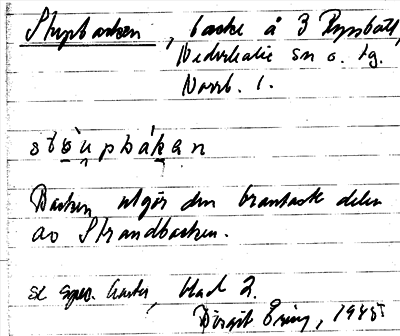 Stupbacken, backe å 3 Rynbäck,
Nederkalix sn o. tg.
Norrb. l.
stʉ̀pbákan
Backen utgör den brantaste delen
av Strandbacken.
se spec. karta, blad 2.
Birgit Ering, 1985